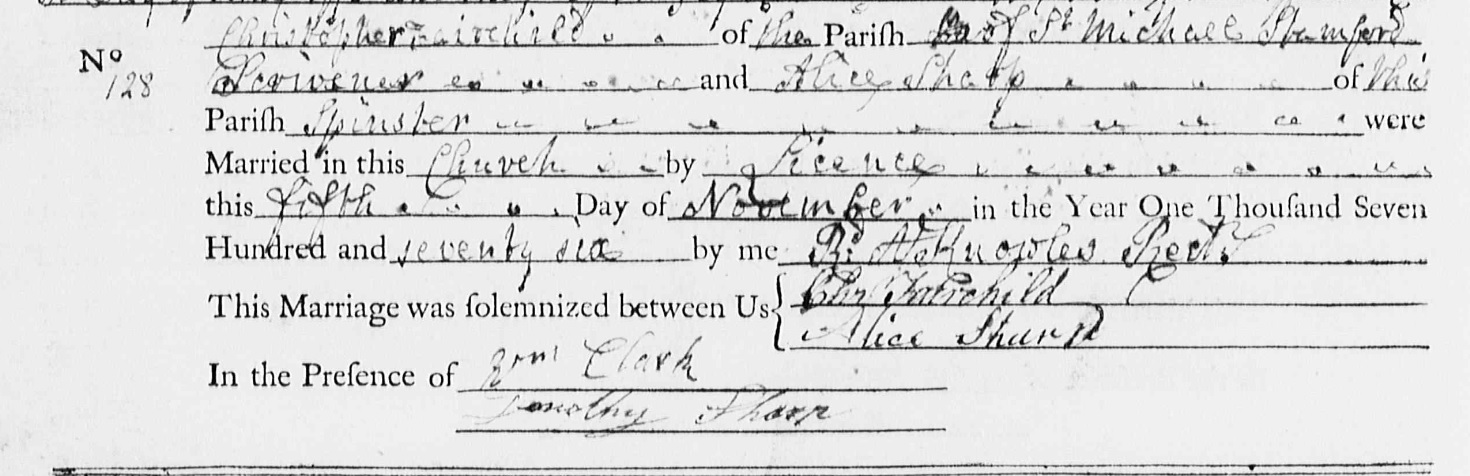 Christopher Fairchild of the Parish of St Michael Stamford
No 128 Scrivener and Alice Sharp of this
Pariſh Spinster were
Married in this Church by Licence
this fifth Day of November in the Year One Thouſand Seven
Hundred and seventy six by me Knowles Rectr
This Marriage was ſolemnized between Us { Chr Fairchild
Alice Sharp
In the Preſence of Wm Clark
Dorothy Sharp